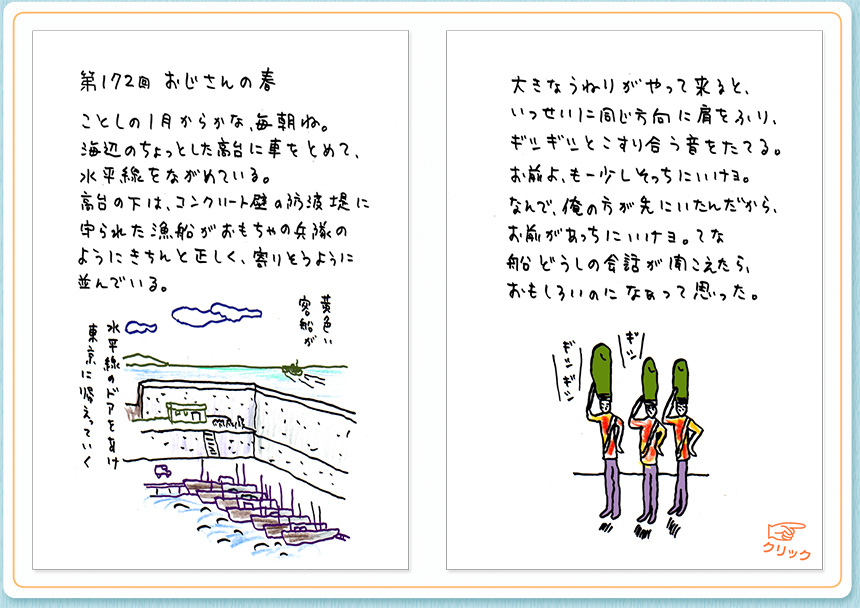 第172回 おじさんの春
ことしの1月からかな、毎朝ね。
海辺のちょっとした高台に車をとめて、
水平線をながめている。
高台の下は、コンクリート壁の防波堤に
守られた漁船がおもちゃの兵隊の
ようにきちんと正しく、寄りそうように
並んでいる。
黄色い
客船が
水平線のドアをあけ
東京に帰えっていく
大きなうねりがやって来ると、
いっせいに同じ方向に肩をふり、
ギシギシとこすり合う音をたてる。
お前よ、もー少しそっちにいけヨ。
なんで、俺の方が先にいたんだから、
お前があっちにいけヨ。てな
船どうしの会話が聞こえたら、
おもしろいのになぁって思った。
ギシギシ
ギシ
クリック